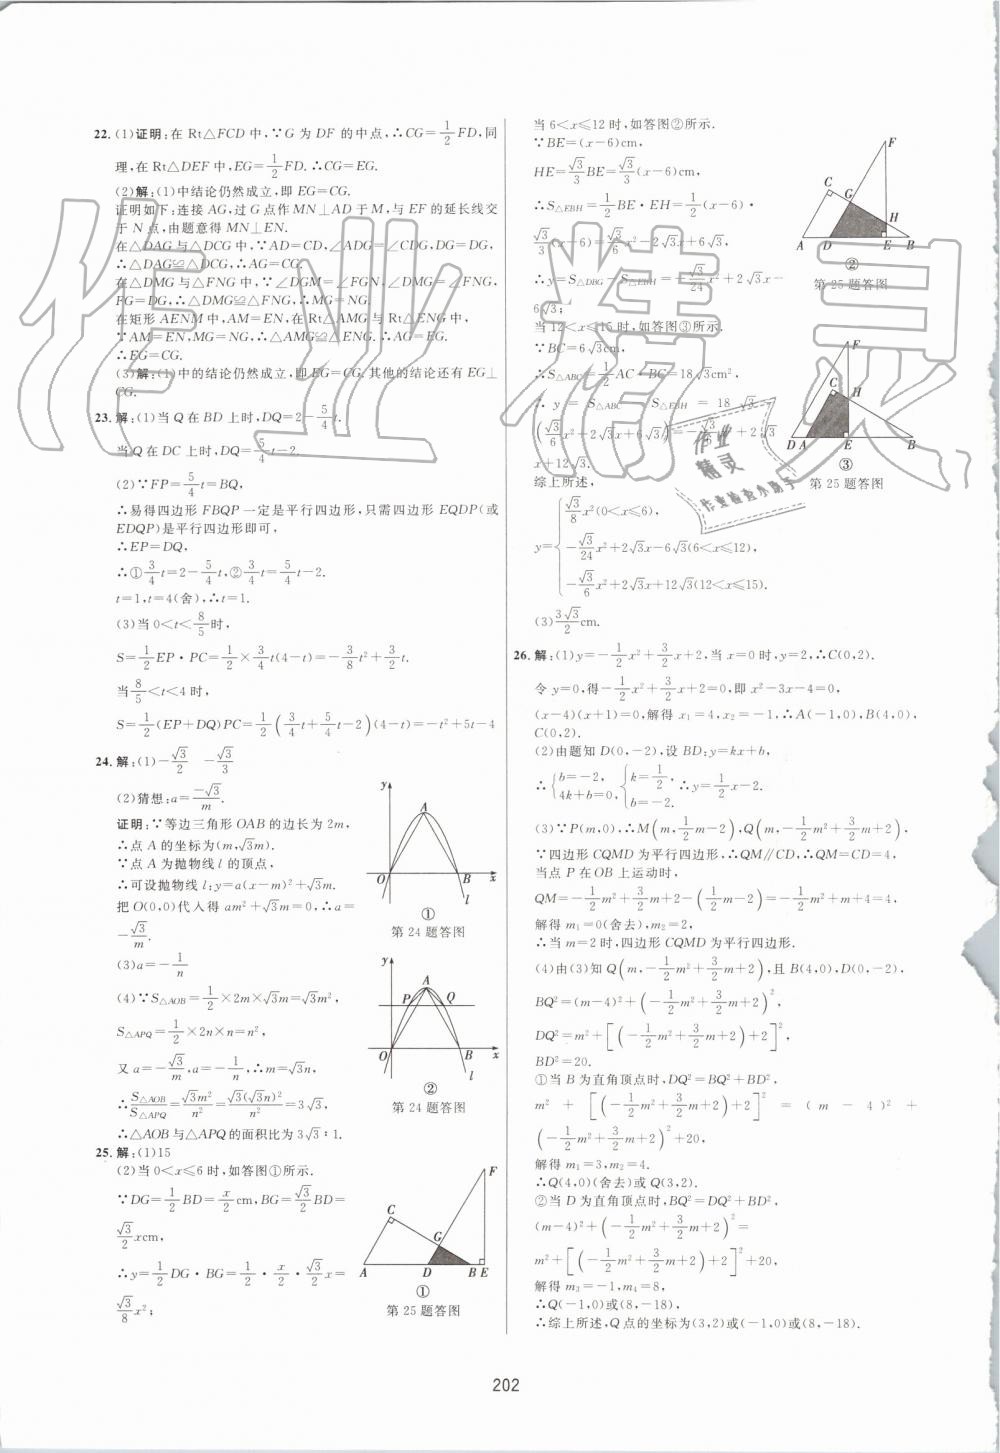 22.(1)证明:在 Rt△FCD 中,∵G 为 DF 的中点,∴CG=1/2FD,同
理,在 Rt△DEF 中,EG=1/2FD.∴CG=EG.
(2)解:(1)中结论仍然成立,即 EG=CG.
证明如下:连接 AG,过 G 点作 MN⊥AD 于 M,与 EF 的延长线交
于 N 点,由题意得 MN⊥EN.
在△DAG 与△DCG 中,∵AD=CD,∠ADG=∠CDG,DG=DG,
∴△DAG≌△DCG,∴AG=CG.
在△DMG 与△FNG 中,∵∠DGM=∠FGN,∠DMG=∠FNG,
FG=DG,∴△DMG≌△FNG,∴MG=NG.
在矩形 AENM 中,AM=EN,在 Rt△AMG 与 Rt△ENG 中,
∵AM=EN,MG=NG,∴△AMG≌△ENG.∴AG=EG.
∴EG=CG.
(3)解:(1)中的结论仍然成立,即 EG=CG.其他的结论还有 EG⊥
CG.
23.解:(1)当 Q 在 BD 上时,DQ=2-5/4t.
当 Q 在 DC 上时,DQ=5/4t-2.
(2)∵FP=5/4t=BQ,
∴易得四边形 FBQP 一定是平行四边形,只需四边形 EQDP(或
EDQP)是平行四边形即可,
∴EP=DQ,
∴①3/4t=2-5/4t,②3/4t=5/4t-2.
t=1,t=4(舍),∴t=1.
(3)当 0<t<8/5时,
S=1/2EP·PC=1/2×3/4t(4-t)=-3/8t²+3/2t.
当8/5<t<4 时,
S=1/2(EP+DQ)PC=1/2(3/4t+5/4t-2)(4-t)=-t²+5t-4
24.解:(1)-√3/2 -√3/3
(2)猜想:a=-√3/m.
证明:∵等边三角形 OAB 的边长为 2m,
∴点 A 的坐标为(m,√3m).
∵点 A 为抛物线 l 的顶点,
∴可设抛物线 l:y=a(x-m)²+√3m.
把 O(0,0)代入得 am²+√3m=0,∴a=
-√3/m.
(3)a=-1/n
(4)∵S△AOB=1/2×2m×√3m=√3m²,
S△APQ=1/2×2n×n=n²,
又 a=-√3/m,a=-1/n,∴m=√3n,
∴S△AOB/S△APQ=√3m²/n²=√3(√3n)²/n²=3√3,
∴△AOB 与△APQ 的面积比为 3√3∶1.
y A O B x l
①
第 24 题答图
y A P Q O B x l
②
第 24 题答图
25.解:(1)15
(2)当 0<x≤6 时,如答图①所示.
∵DG=1/2BD=x/2cm,BG=√3/2BD=
√3/2xcm,
∴y=1/2DG·BG=1/2·x/2·√3/2x=
√3/8x²;
F C G A D B E
①
第 25 题答图
当 6<x≤12 时,如答图②所示.
∵BE=(x-6)cm,
HE=√3/3BE=√3/3(x-6)cm,
∴S△EBH=1/2BE·EH=1/2(x-6)·
√3/3(x-6)=√3/6x²-2√3x+6√3,
∴y=S△DBG-S△EBH=-√3/24x²+2√3x-
6√3;
F C G H A D E B
②
第 25 题答图
当 12<x≤15 时,如答图③所示.
∵BC=6√3cm,
∴S△ABC=1/2AC·BC=18√3cm²,
∴y=S△ABC-S△EBH=18√3-
(√3/6x²-2√3x+6√3)=-√3/6x²+2√3
x+12√3.
F C H D A E B
③
第 25 题答图
综上所述,
y={√3/8x²(0<x≤6),
-√3/24x²+2√3x-6√3(6<x≤12),
-√3/6x²+2√3x+12√3(12<x≤15).
(3)3√3/2cm.
26.解:(1)y=-1/2x²+3/2x+2,当 x=0 时,y=2,∴C(0,2).
令 y=0,得-1/2x²+3/2x+2=0,即 x²-3x-4=0,
(x-4)(x+1)=0,解得 x₁=4,x₂=-1,∴A(-1,0),B(4,0),
C(0,2).
(2)由题知 D(0,-2),设 BD:y=kx+b,
∴{b=-2, 4k+b=0, {k=1/2, b=-2. ∴y=1/2x-2.
(3)∵P(m,0),∴M(m,1/2m-2),Q(m,-1/2m²+3/2m+2),
∵四边形 CQMD 为平行四边形,∴QM∥CD,∴QM=CD=4,
当点 P 在 OB 上运动时,
QM=-1/2m²+3/2m+2-(1/2m-2)=-1/2m²+m+4=4,
解得 m₁=0(舍去),m₂=2.
∴当 m=2 时,四边形 CQMD 为平行四边形.
(4)由(3)知 Q(m,-1/2m²+3/2m+2),且 B(4,0),D(0,-2),
BQ²=(m-4)²+(-1/2m²+3/2m+2)²,
DQ²=m²+[(-1/2m²+3/2m+2)+2]²,
BD²=20.
①当 B 为直角顶点时,DQ²=BQ²+BD²,
m²+[(-1/2m²+3/2m+2)+2]²=(m-4)²+
(-1/2m²+3/2m+2)²+20,
解得 m₁=3,m₂=4.
∴Q(4,0)(舍去)或 Q(3,2).
②当 D 为直角顶点时,BQ²=DQ²+BD²,
(m-4)²+(-1/2m²+3/2m+2)²=
m²+[(-1/2m²+3/2m+2)+2]²+20,
解得 m₃=-1,m₄=8,
∴Q(-1,0)或(8,-18).
∴综上所述,Q 点的坐标为(3,2)或(-1,0)或(8,-18).
202
作业精灵
作业精灵
作业检查小助手